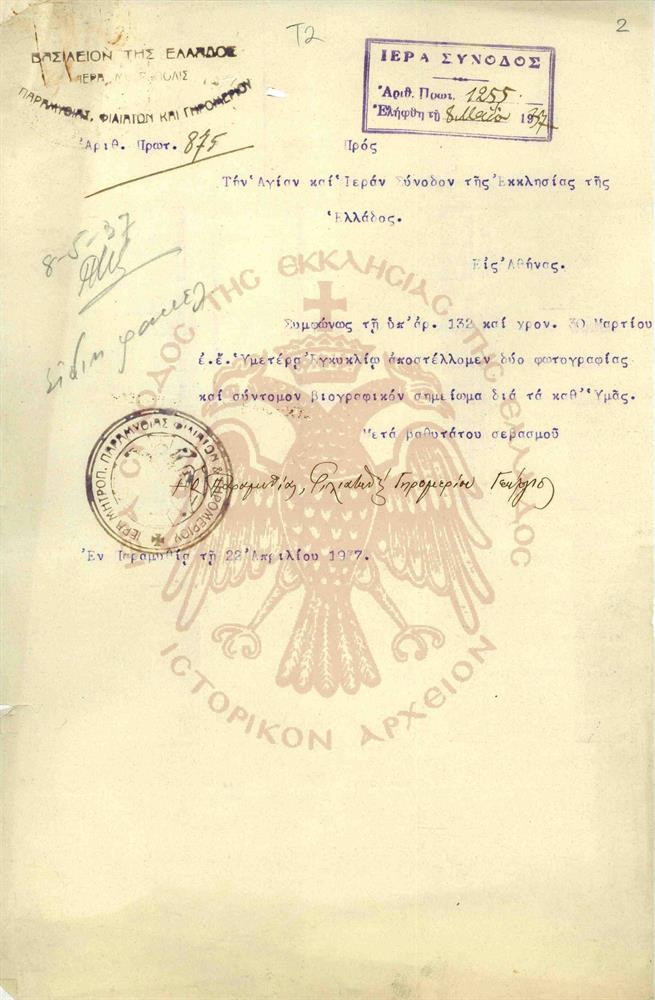 T2
2
ΒΑΣΙΛΕΙΟΝ ΤΗΣ ΕΛΛΑΔΟΣ
ΙΕΡΑ ΜΗΤΡΟΠΟΛΙΣ
ΠΑΡΑΜΥΘΙΑΣ, ΦΙΛΙΑΤΩΝ ΚΑΙ ΓΗΡΟΜΕΡΙΟΥ
Ἀριθ. Πρωτ. 875
ΙΕΡΑ ΣΥΝΟΔΟΣ
Ἀριθ. Πρωτ. 1255
Ἐλήφθη τῇ 8 Μαΐου 1937
Πρός
Τήν Ἁγίαν καί Ἱεράν Σύνοδον τῆς Ἐκκλησίας τῆς
Ἑλλάδος.
Εἰς Ἀθήνας.
8-5-37
Συμφώνως τῇ ὑπ' ἀρ. 132 καί χρον. 30 Μαρτίου
ἐ.ἔ. Ὑμετέρᾳ Ἐγκυκλίῳ ἀποστέλλομεν δύο φωτογραφίας
καί σύντομον βιογραφικόν σημείωμα διά τά καθ' Ὑμᾶς.
Μετά βαθυτάτου σεβασμοῦ
Ὁ Παραμυθίας, Φιλιατῶν & Γηρομερίου Γεώργιος
ΙΕΡΑ ΜΗΤΡΟΠ. ΠΑΡΑΜΥΘΙΑΣ ΦΙΛΙΑΤΩΝ & ΓΗΡΟΜΕΡΙΟΥ
Ἐν Παραμυθίᾳ τῇ 22 Ἀπριλίου 1937.
ΙΕΡΑ ΣΥΝΟΔΟΣ ΤΗΣ ΕΚΚΛΗΣΙΑΣ ΤΗΣ ΕΛΛΑΔΟΣ
ΙΣΤΟΡΙΚΟΝ ΑΡΧΕΙΟΝ